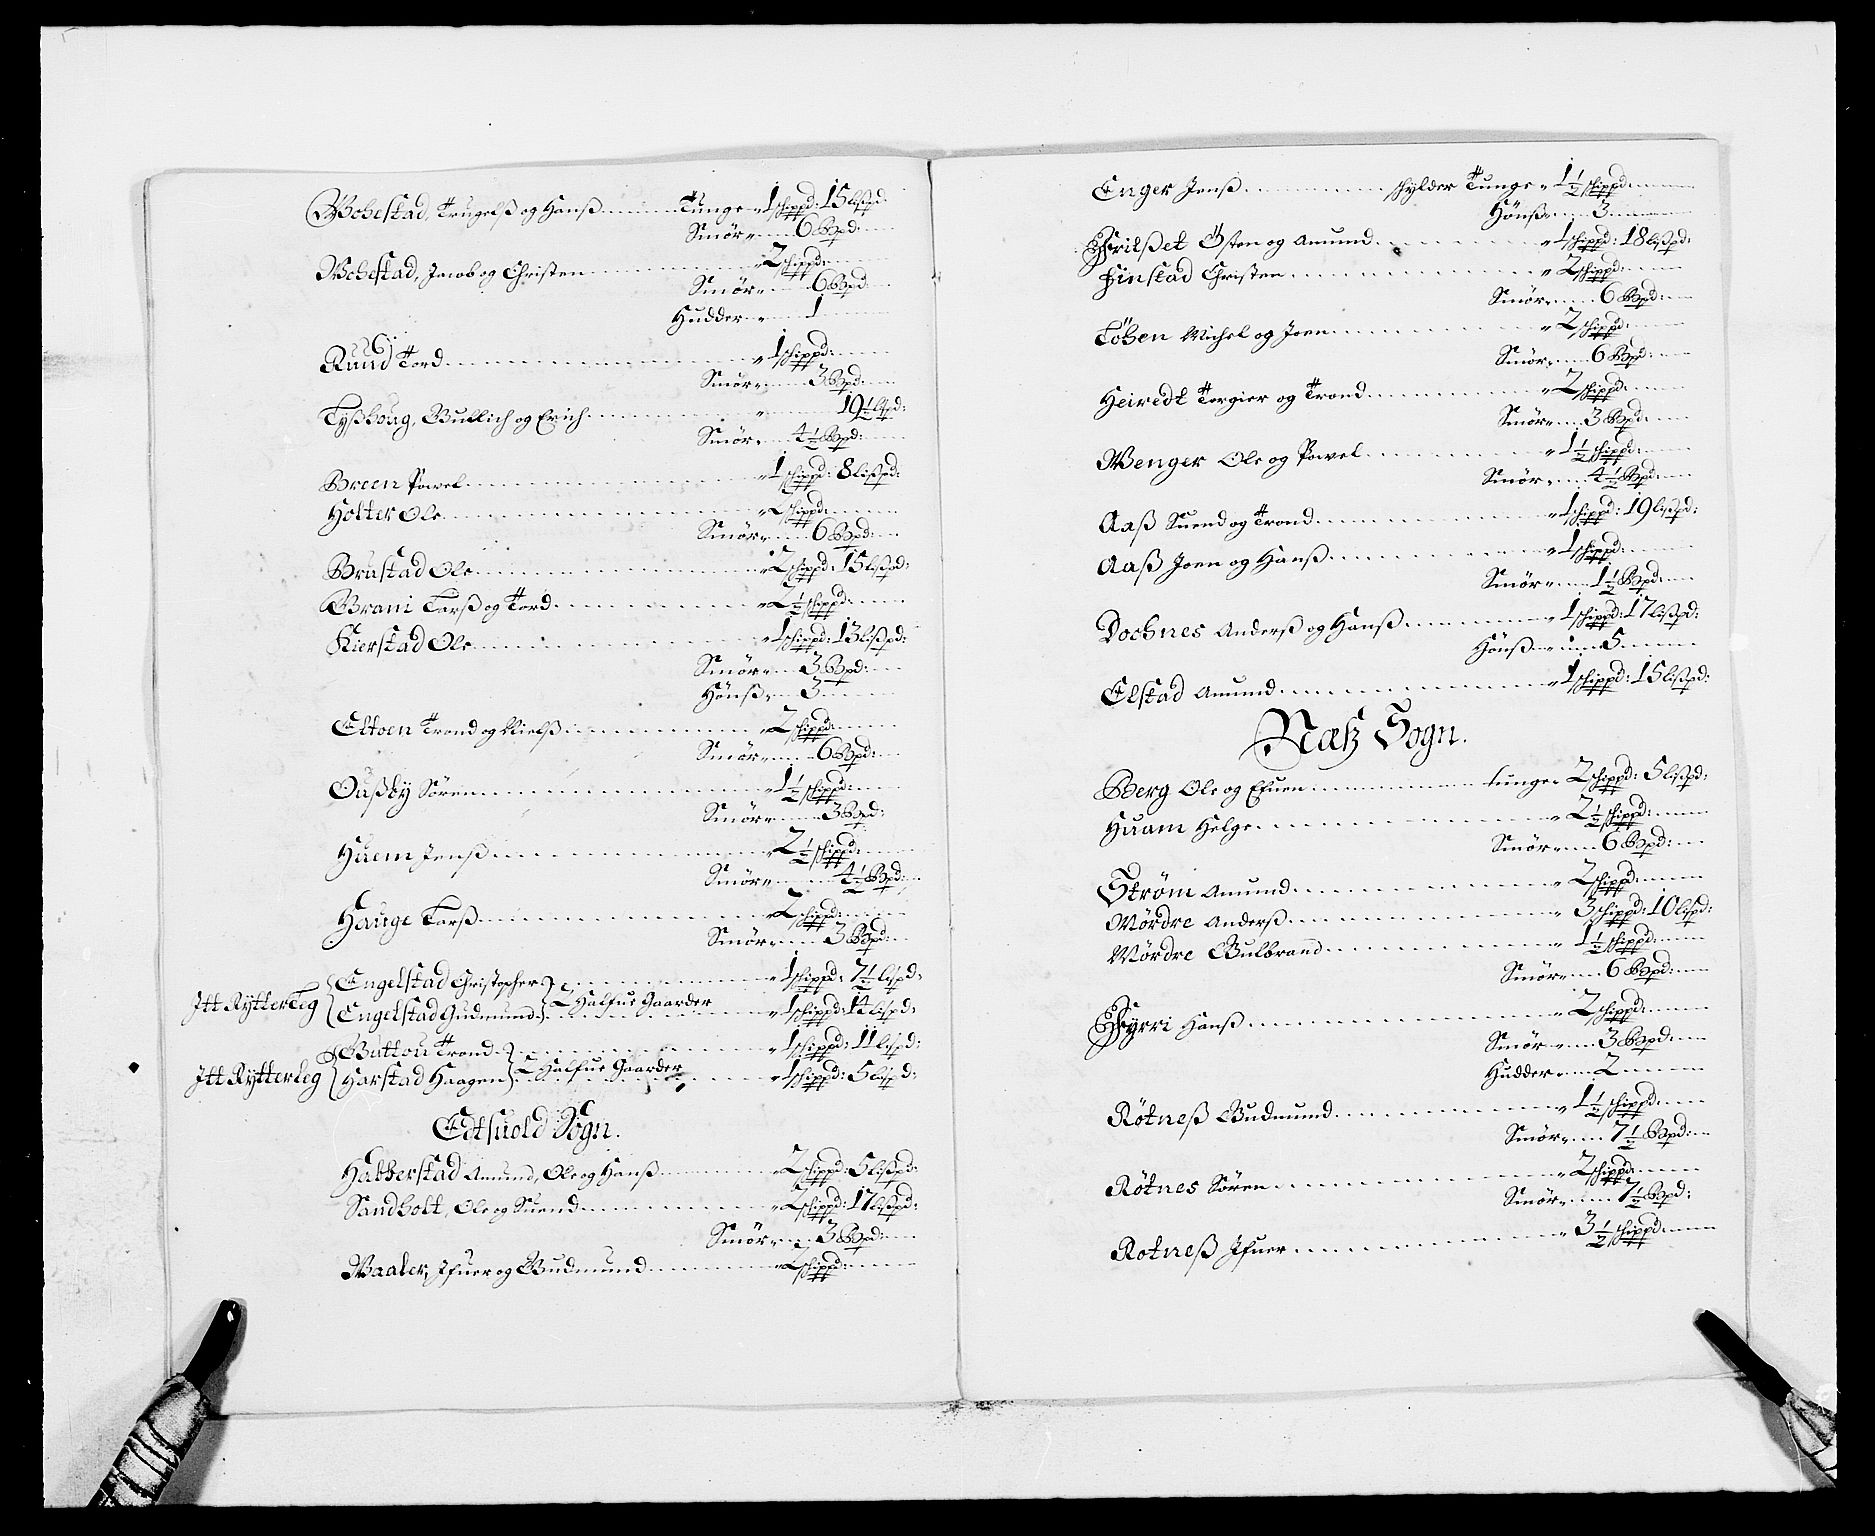 Wobestad, Trugelß og Hanß Tunge 1 schippd: 15 lißpd:
Smör 6 Bpd:
Wobestad, Jacob og Christen 2 schippd:
Smör 6 Bpd:
Hudder 1
Ruud Tord 1 schippd:
Smör 3 Bpd:
Lyßhoug, Gullich og Erich 19½ lißpd:
Smör 4½ Bpd:
Breen Powel 1 schippd: 8 lißpd:
Holter Ole 2 schippd:
Smör 6 Bpd:
Brustad Ole 2 schippd: 15 lißpd:
Brani Larß og Tord 2½ schippd:
Kierstad Ole 1 schippd: 13 lißpd:
Smör 3 Bpd:
Hönß 3
Eltoen Trond og Nielß 2 schippd:
Smör 6 Bpd:
Oußby Sören 1½ schippd:
Smör 3 Bpd:
Huem Jenß 2½ schippd:
Smör 4½ Bpd:
Hauge Larß 2 schippd:
Smör 3 Bpd:
Engelstad Christopher 1 schippd: 7½ lispd:
Itt Rytterleg Halfue Gaarder
Engelstad Gudmund 1 schippd: 14 lispd:
Buttou Trond 1 schippd: 11 lispd:
Itt Rytterleg Halfue Gaarder
Harstad Haagen 1 schippd: 5 lispd:
Edtsuold Sogn.
Habberstad Amund, Ole og Hanß 2 schippd: 5 lißpd:
Sandholt, Ole og Suend 2 schippd: 17 lißpd:
Smör 3 Bpd:
Waaler, Ifuer og Gudmund 2 schippd:
Enger Jenß schylder Tunge 1½ schippd:
Hönß 3
Frilßet Östen og Amund 1 schippd: 18 lißpd:
Finstad Christen 2 schippd:
Smör 6 Bpd:
Löben Michel og Joen 2 schippd:
Smör 6 Bpd:
Heiredt Torgier og Trond 2 schippd:
Smör 3 Bpd:
Wenger Ole og Powel 1½ schippd:
Smör 4½ Bpd:
Aaß Suend og Trond 1 schippd: 19 lißpd:
Aaß Joen og Hanß 1 schippd:
Smör 1½ Bpd:
Dochnes Anderß og Hanß 1 schippd: 17 lißpd:
Hönß 5
Elstad Amund 1 schippd: 15 lißpd:
Næß Sogn.
Berg Ole og Efuen tunge 2 schippd: 5 lißpd:
Huam Helge 2½ schippd:
Smör 6 Bpd:
Ström Amund 2 schippd:
Mördre Anderß 3 schippd: 10 lispd:
Mördre Gulbrand 1½ schippd:
Smör 6 Bpd:
Fyrri Hanß 2 schippd:
Smör 3 Bpd:
Hudder 2
Rötneß Gudmund 1½ schippd:
Smör 7½ Bpd:
Rötnes Sören 2 schippd:
Smör 7½ Bpd:
Rotneß Ifuer 3½ schippd: